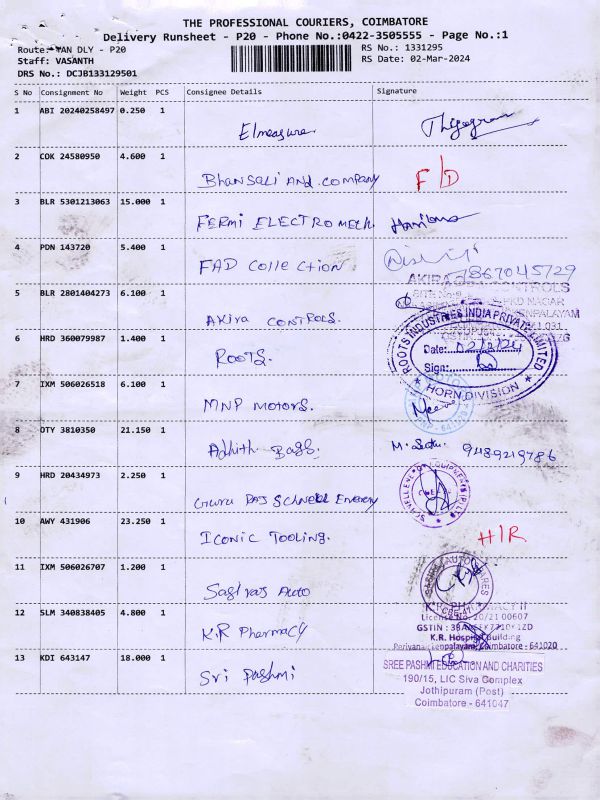 THE PROFESSIONAL COURIERS, COIMBATORE
Delivery Runsheet - P20 - Phone No.:0422-3505555 - Page No.:1
Route: VAN DLY - P20
RS No.: 1331295
Staff: VASANTH
RS Date: 02-Mar-2024
DRS No.: DCJB133129501
S No Consignment No Weight PCS Consignee Details Signature
1 ABI 20240258497 0.250 1
Elmeasure
2 COK 24580950 4.600 1
Bhansali And Company F/D
3 BLR 5301213063 15.000 1
FERMI ELECTROMECH.
4 PDN 143720 5.400 1
FAD Collection
7867045729
5 BLR 2801404273 6.100 1
AKira CONTROLS.
6 HRD 360079987 1.400 1
ROOTS.
ROOTS INDUSTRIES INDIA PRIVATE LIMITED
Date:
Sign:
HORN DIVISION
7 IXM 506026518 6.100 1
MNP Motors.
8 OTY 3810350 21.150 1
Adhith Bags. 9489219786
9 HRD 20434973 2.250 1
Guru Raj Schnell Energy
10 AWY 431906 23.250 1
ICONIC TOOLING. H/R
11 IXM 506026707 1.200 1
Sagiraj Auto
12 SLM 340838405 4.800 1
K.R Pharmacy
K.R. PHARMACY II
License No. 20/21 00607
K.R. Hospital Building
Periyanaickenpalayam, Coimbatore - 641020
13 KDI 643147 18.000 1
Sri Pashmi
SREE PASHMI EDUCATION AND CHARITIES
190/15, LIC Siva Complex
Jothipuram (Post)
Coimbatore - 641047